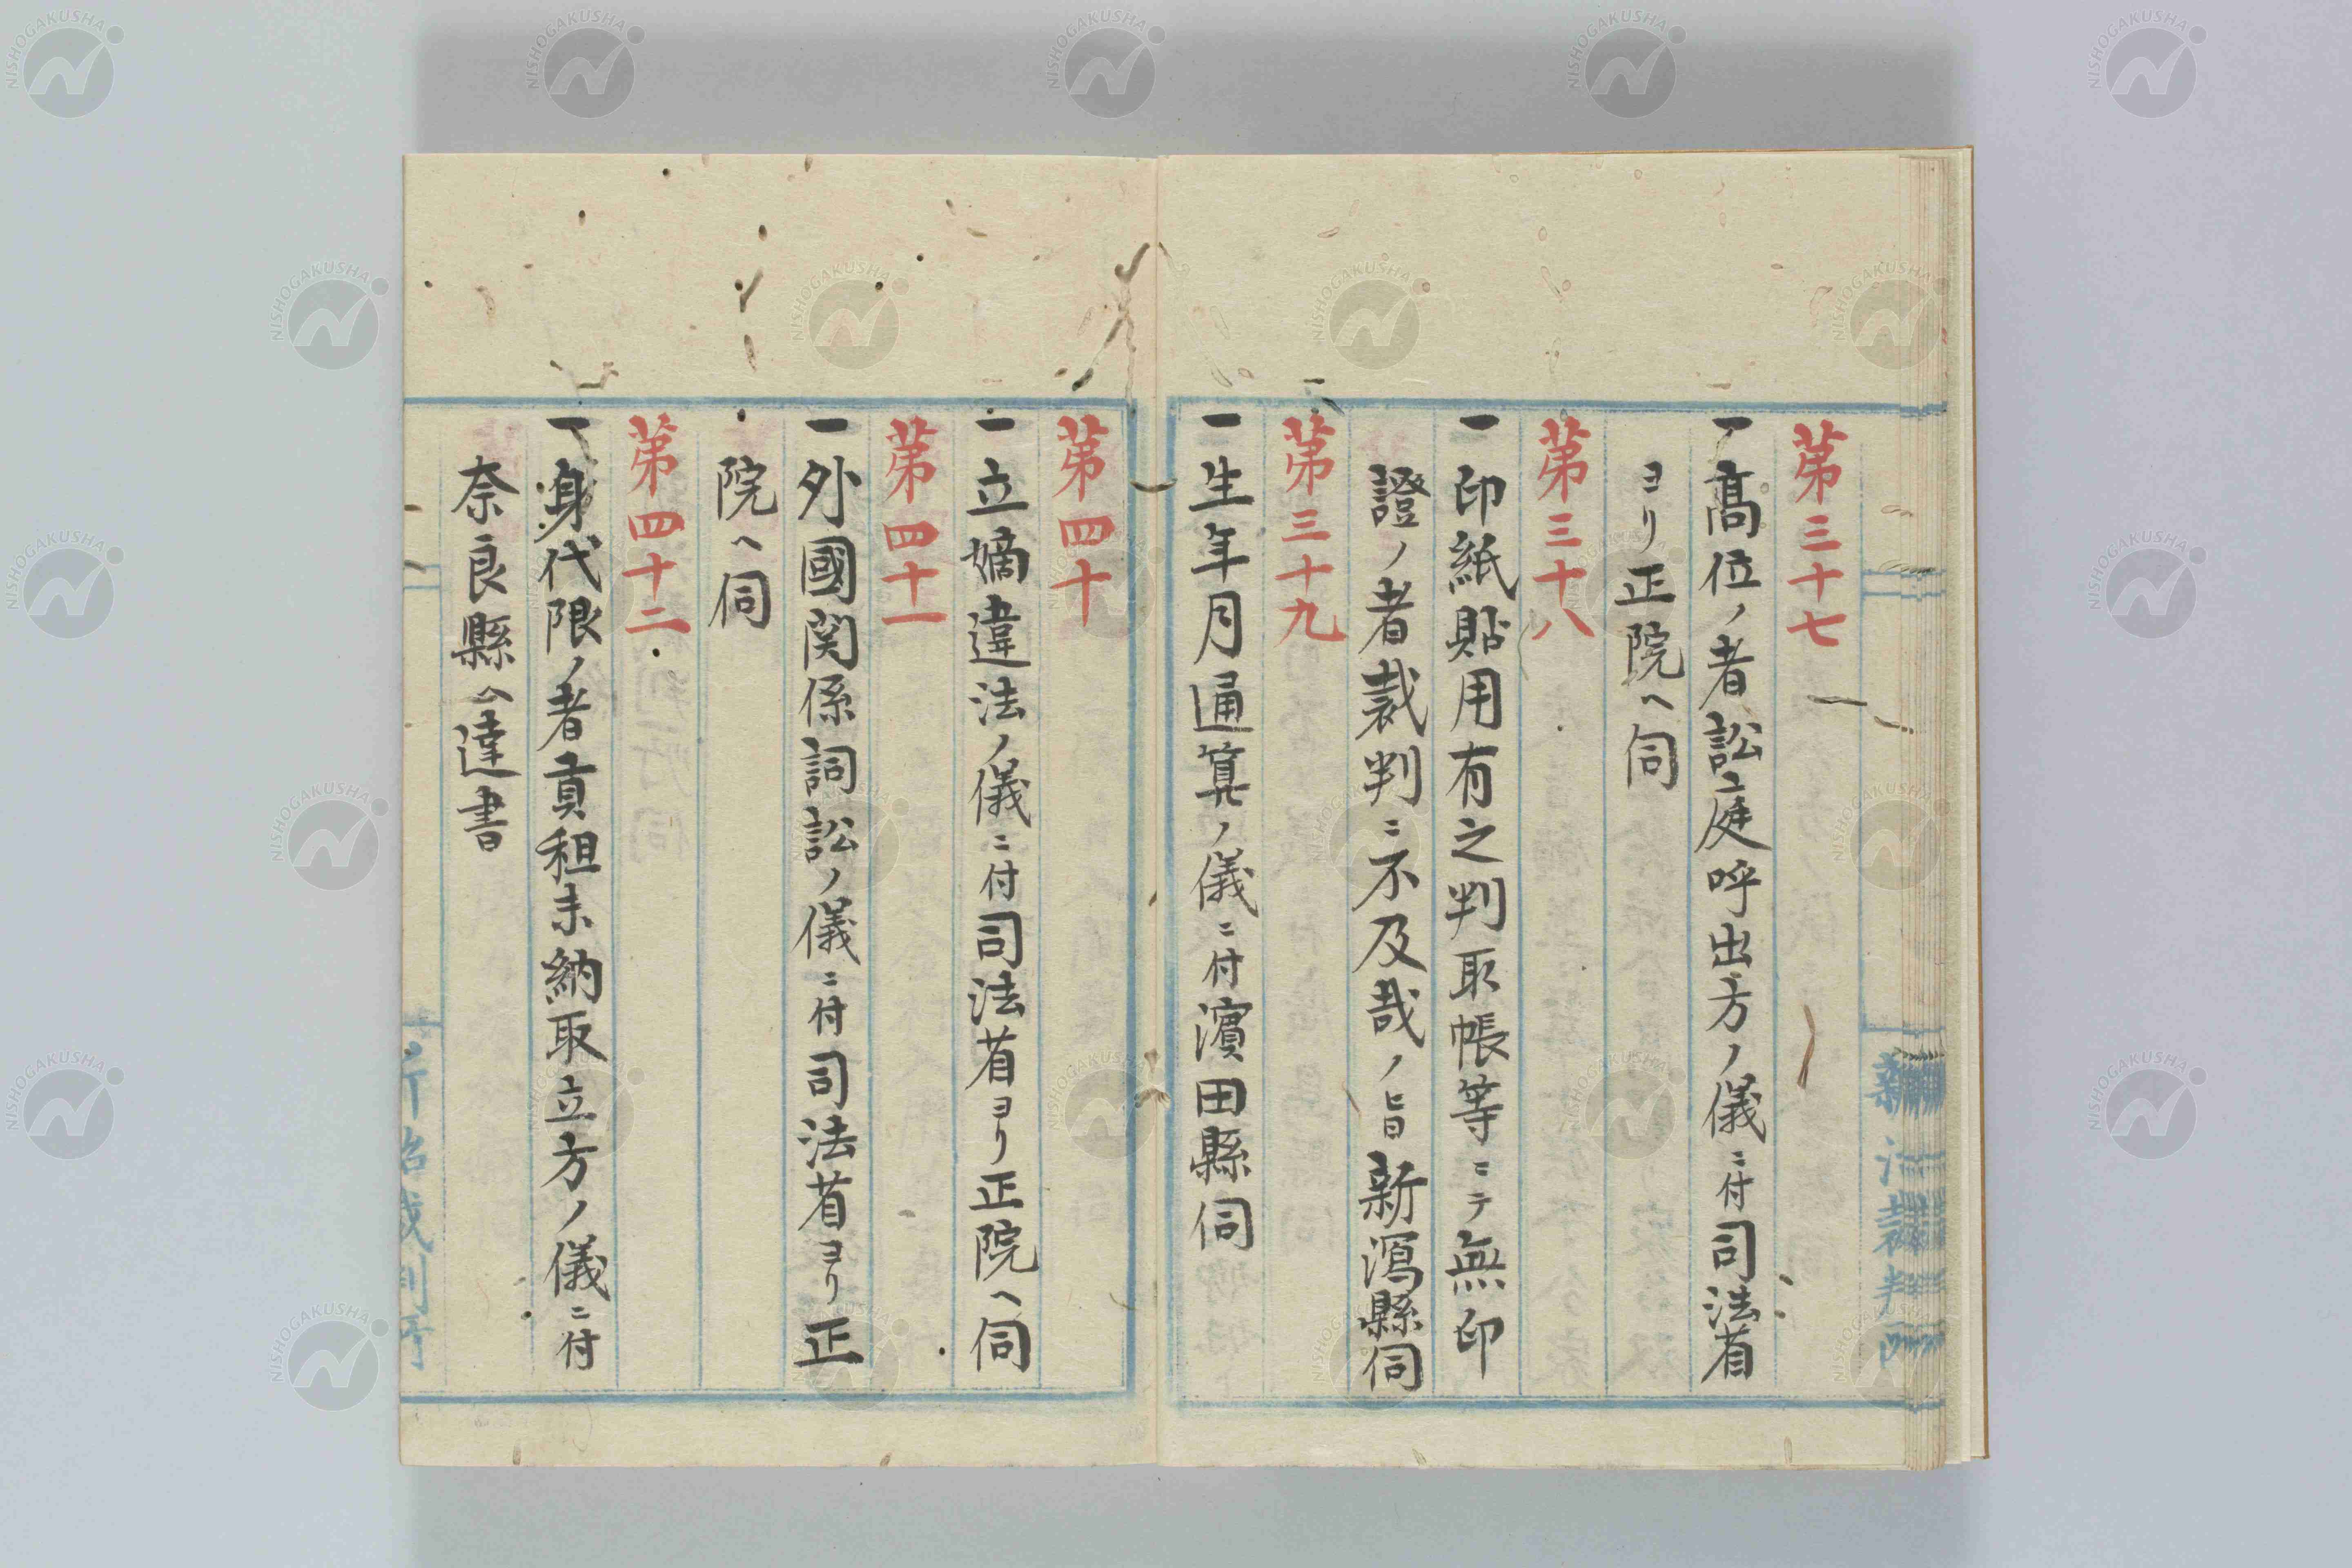 第三十七
一高位ノ者訟庭呼出方ノ儀ニ付司法省
ヨリ正院ヘ伺
第三十八
一印紙貼用有之判取帳等ニテ無印
證ノ者裁判ニ不及哉ノ旨新潟縣伺
第三十九
一生年月通算ノ儀ニ付濱田縣伺
第四十
一立嫡違法ノ儀ニ付司法省ヨリ正院ヘ伺
第四十一
一外國関係詞訟ノ儀ニ付司法省ヨリ正
院ヘ伺
第四十二
一身代限ノ者貢租未納取立方ノ儀ニ付
奈良縣ヘ達書
NISHOGAKUSHA